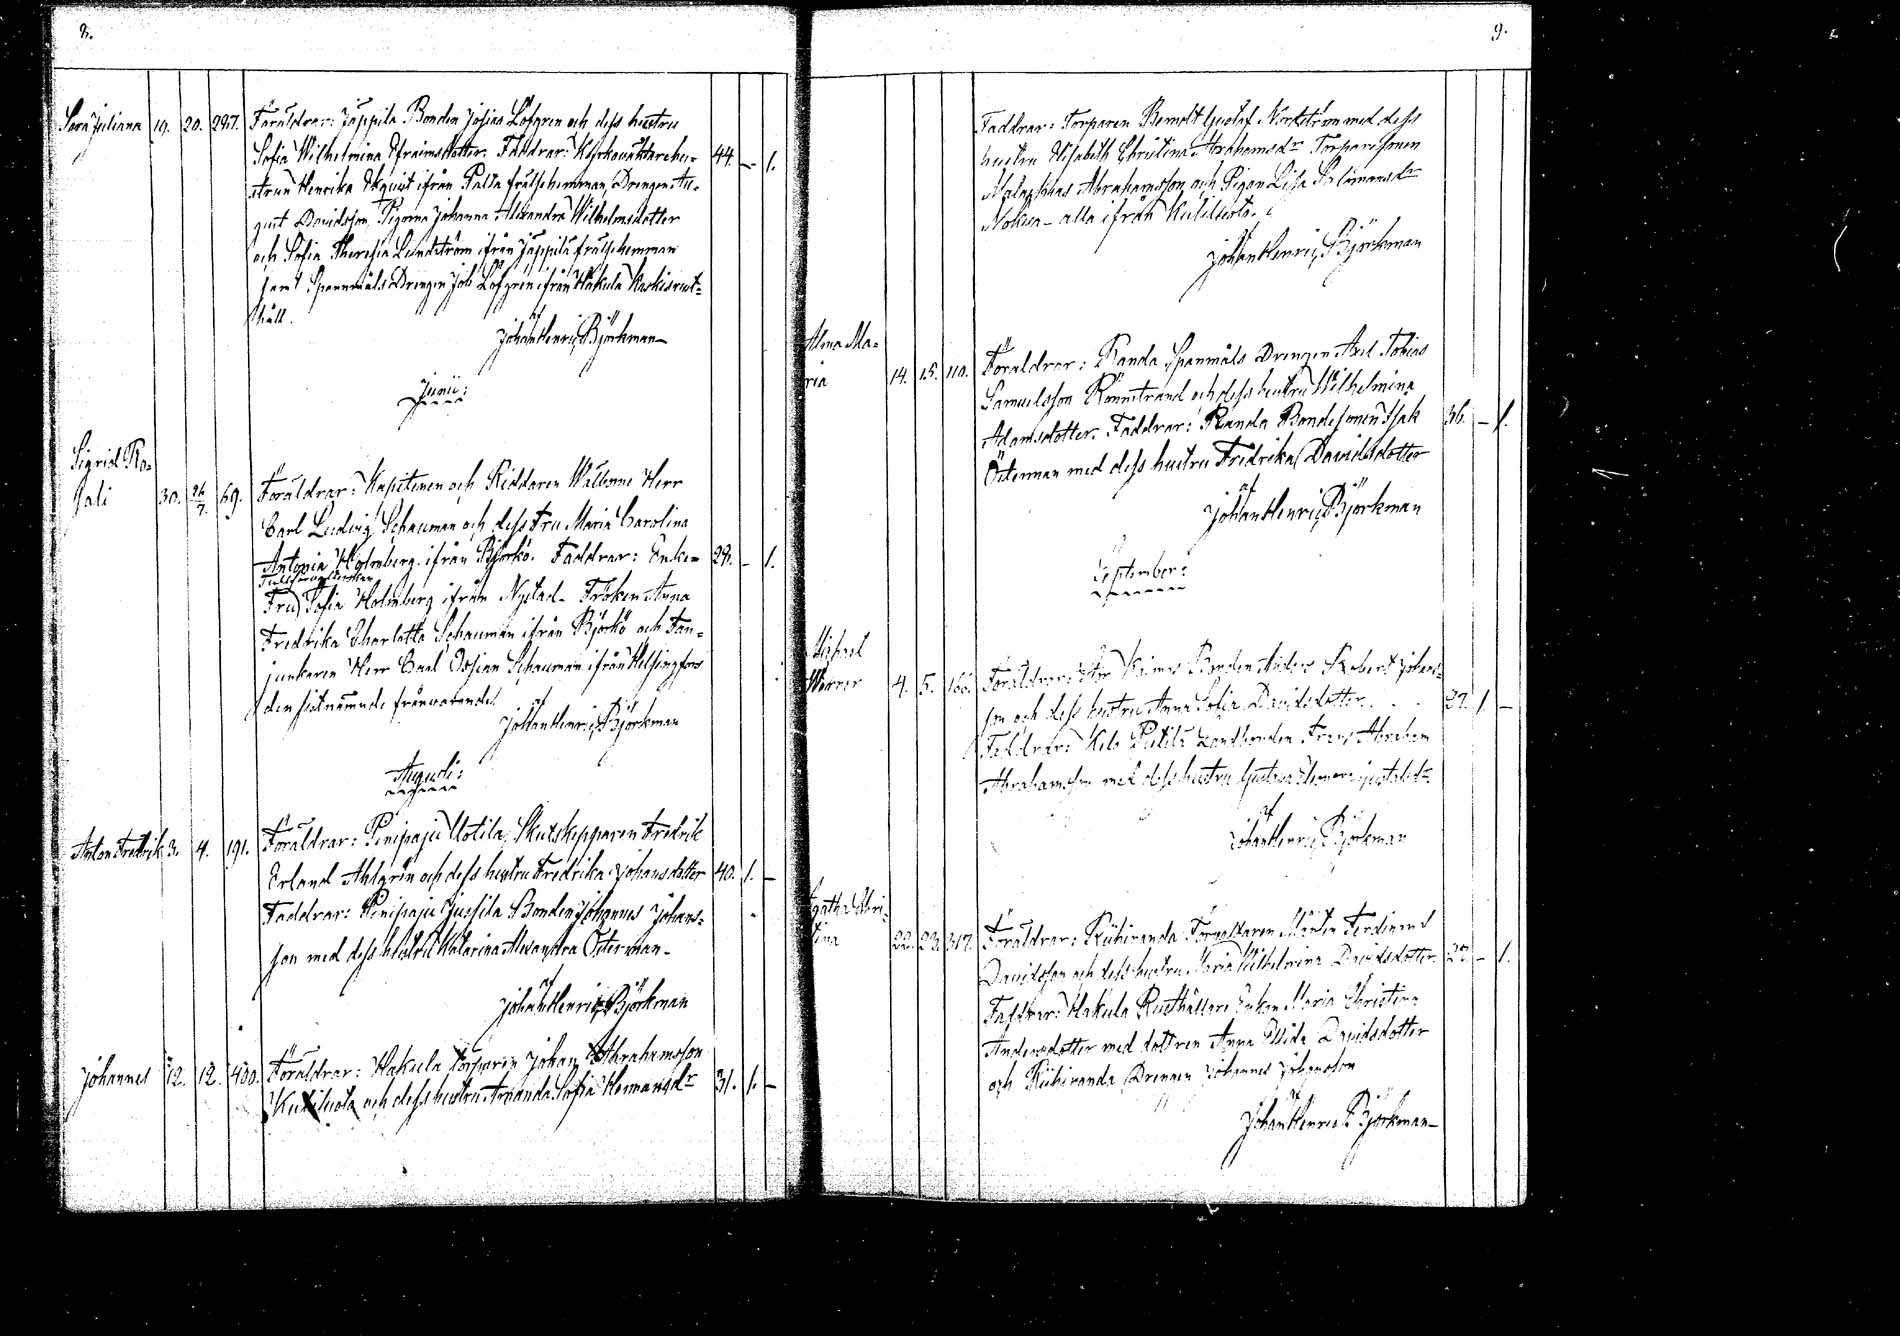 8.
Sara Juliana 19. 20. 287. Föräldrar: Jäppilä Bonden Josias Löfgren och dess hustru
Sofia Wilhelmina Efraimsdotter. Faddrar: Kyrkovaktarehu- 44. - 1.
strun Henrika Ekqvist ifrån Palsa frälsehemman, Drengen Au-
gust Davidsson, Pigorna Johanna Alexandra Wilhelmsdotter
och Sofia Theresia Lundström ifrån Jäppilä frälsehemman
samt Spannmåls Drengen Job Löfgren ifrån Hakula Rust-
håll.
af
Johan Henric Björkman
Junii:
Sigrid Ro-
sali 30. 26/7. 69. Föräldrar: Kapitenen och Riddaren Wälborne Herr
Carl Ludvig Schauman och dess Fru Maria Carolina
Antonia Holmberg ifrån Björkö. Faddrar: Enke- 28. - 1.
Tullförvalterskan
Fru Sofia Holmberg ifrån Nystad - Fröken Anna
Fredrika Charlotta Schauman ifrån Björkö och Fan-
junkaren Herr Carl Ossian Schauman ifrån Helsingfors
den sistnämnde frånvarande.
af
Johan Henric Björkman
Augusti:
Anton Fredrik 3. 4. 191. Föräldrar: Pinipaju Uotila Skutskepparen Fredrik
Erland Ahlgren och dess hustru Fredrika Johansdotter 40. 1. -
Faddrar: Pinipaju Jussila Bonden Johannes Johans-
son med dess hustru Katarina Alexandra Österman -
af
Johan Henric Björkman
Johannes 12. 12. 400. Föräldrar: Hakula Torparen Johan Abrahamsson
Kuliluoto och dess hustru Amanda Sofia Hermansdr 31. 1. -
9.
Faddrar: Torparen Berndt Gustaf Nordström med dess
hustru Elisabeth Christina Abrahamsdr Torparesonen
Malachias Abrahamsson och Pigan Lisa Salomonsdr
Nokka - alla ifrån Kuliluoto.
af
Johan Henric Björkman
Alma Ma-
ria 14. 15. 110. Föräldrar: Randa Spanmåls Drengen Axel Tobias
Samuelsson Rönnstrand och dess hustru Wilhelmina
Adamsdotter. Faddrar: Randa Bondesonen Isak 36. - 1.
Österman med dess hustru Fredrika Davidsdotter
af
Johan Henric Björkman
September:
Michael
Werner 4. 5. 166. Föräldrar: Robert Johans-
son och dess hustru Anna Sofia Davidsdotter. 27. 1. -
Faddrar: Landbonden Frans Abraham
Abrahamsson med dess hustru Gustava Gustafsdr
af
Johan Henric Björkman
Agatha Chri-
stina 22. 23. 317. Föräldrar: Riihiranda Torparen Mårten Ferdinand
Davidsson och dess hustru Maria Wilhelmina Davidsdotter - 1.
Faddrar: Hakula Rusthållare Enkan Maria Christina
Andersdotter med dottren Anna Davidsdotter
och Riihiranda Drengen Johannes Johansson
af
Johan Henric Björkman